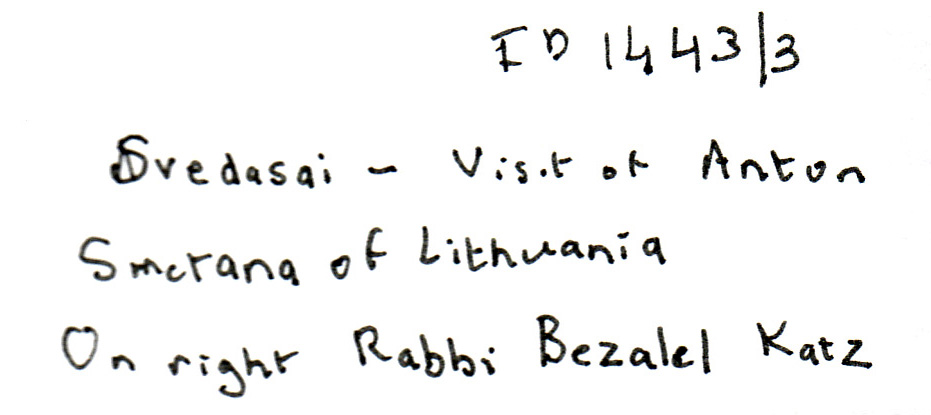 ID 1443/3
Svedasai - Visit of Anton
Smetana of Lithuania
On right Rabbi Bezalel Katz